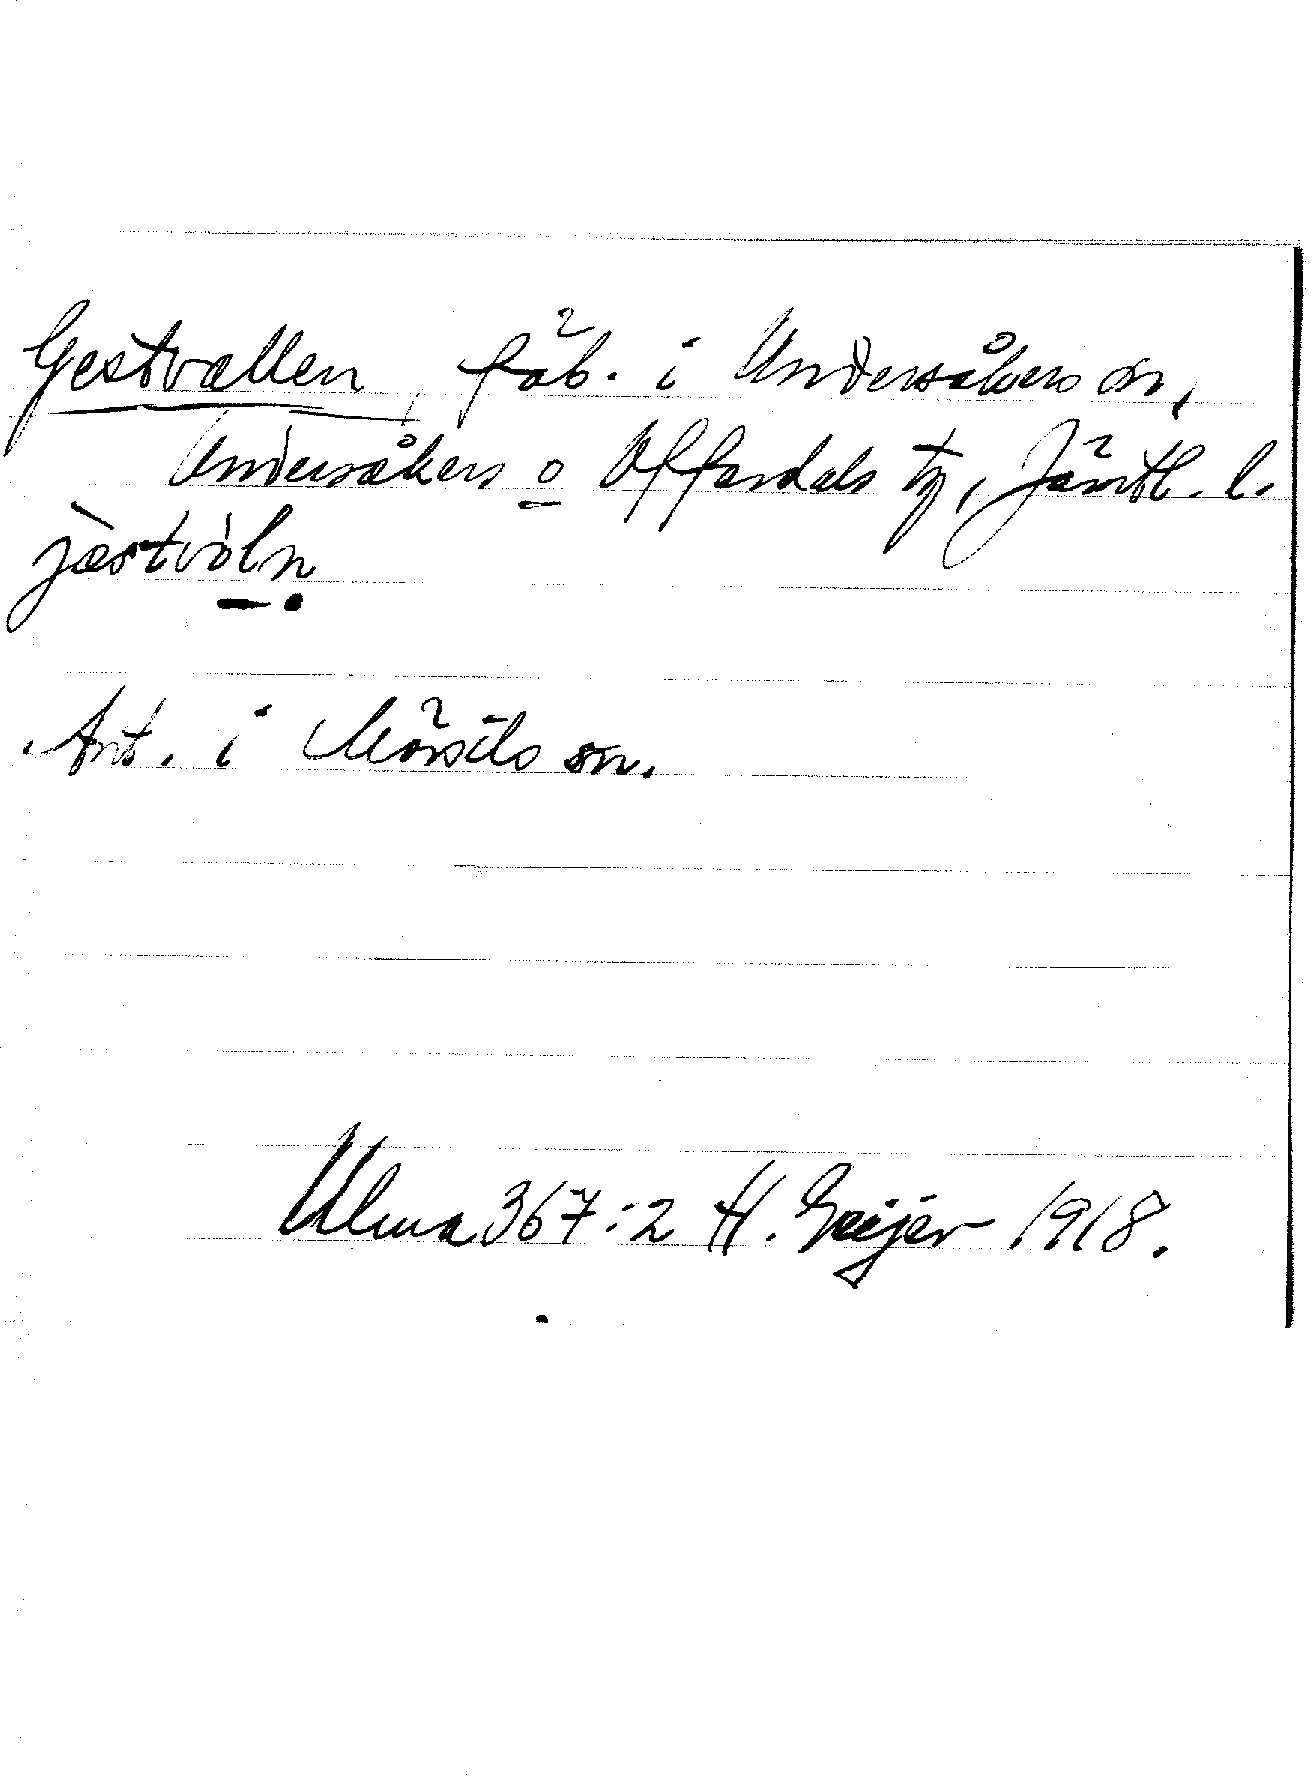 Gestvallen, fäb. i Undersåkers sn,
Undersåkers o Offerdals tg, Jämtl. l.
jæ̀stvòln
Ant. i Mörsils sn.
Ulma 367:2 H. Geijer 1918.